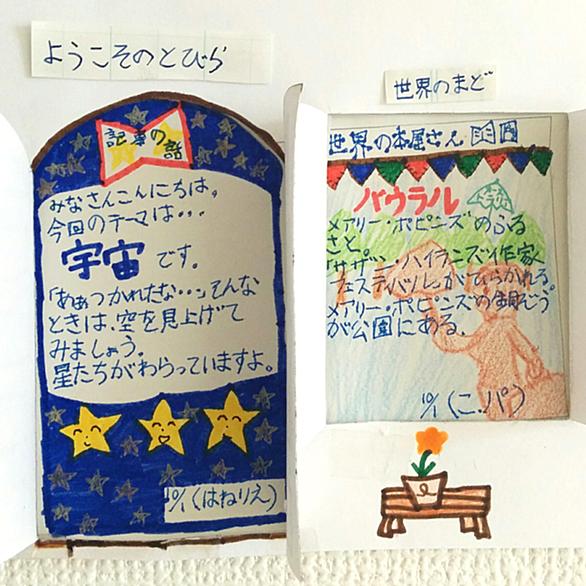 ようこそのとびら
記事の話
みなさんこんにちは。
今回のテーマは・・・
宇宙です。
「あぁつかれたな・・・」そんな
ときは、空を見上げて
みましょう。
星たちがわらっていますよ。
10/1(はねりえ)
世界のまど
世界の本屋さん
バウラル
メアリー・ポピンズのふる
さと。
サザン・ハイランズ作家
フェスティバルがひらかれる。
メアリー・ポピンズの銅ぞう
が公園にある。
10/1(こ.パ)